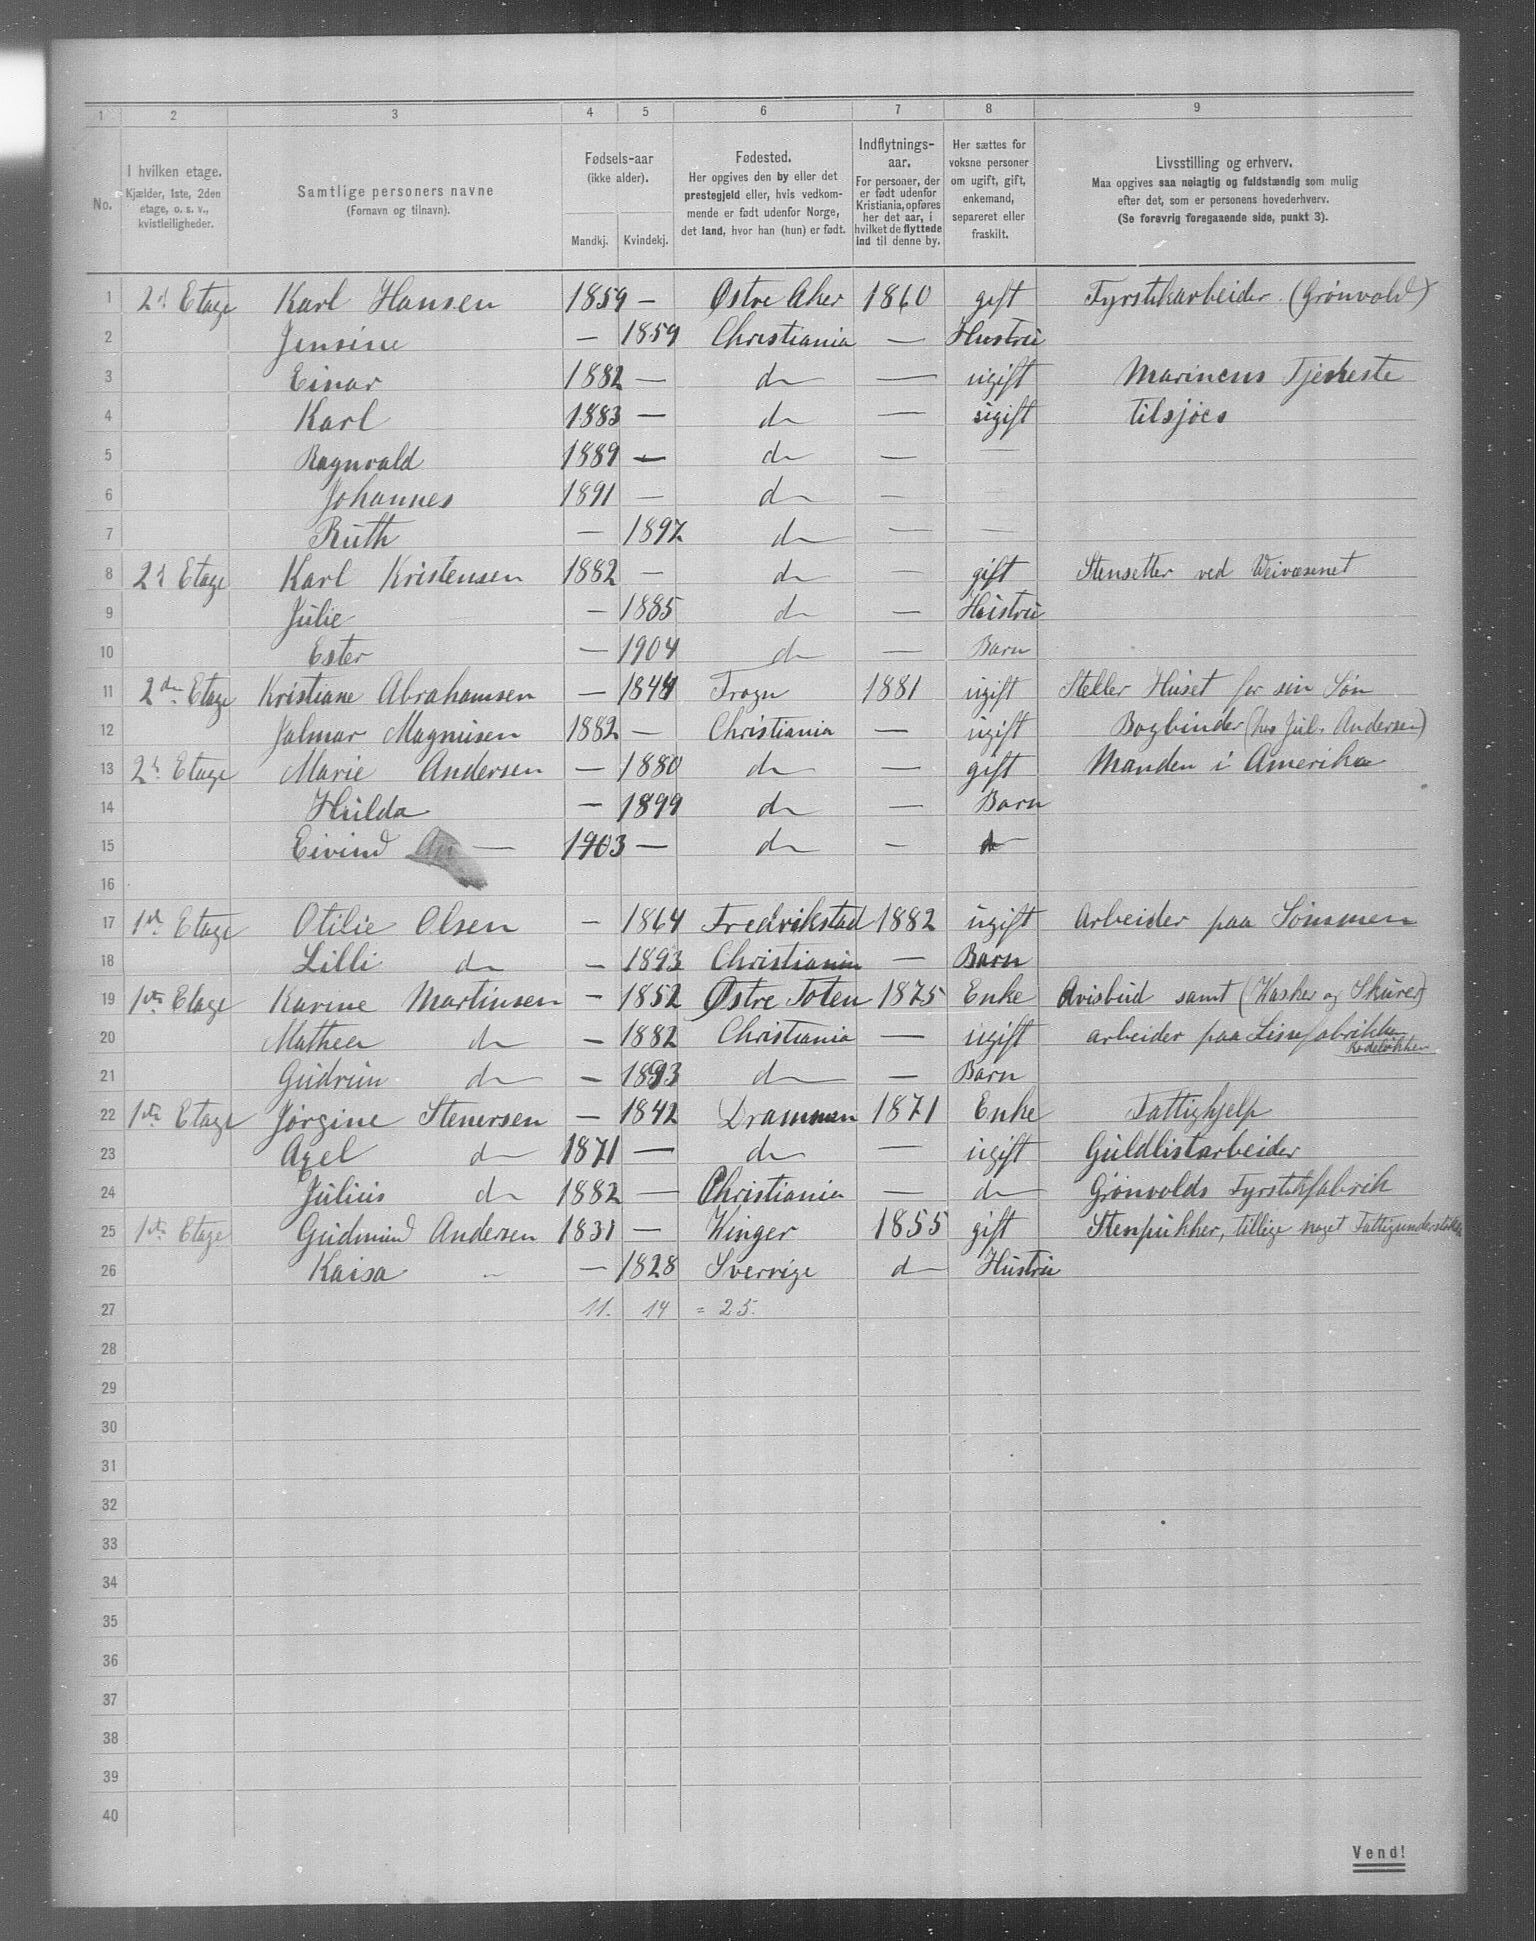 1 2 3 4 5 6 7 8 9
No.
I hvilken etage.
Kjælder, 1ste, 2den
etage, o. s. v.,
kvistleiligheder.
Samtlige personers navne
(Fornavn og tilnavn).
Fødsels-aar
(ikke alder).
Mandkj. Kvindekj.
Fødested.
Her opgives den by eller det
prestegjeld eller, hvis vedkom-
mende er født udenfor Norge,
det land, hvor han (hun) er født.
Indflytnings-
aar.
For personer, der
er født udenfor
Kristiania, opføres
her det aar, i
hvilket de flyttede
ind til denne by.
Her sættes for
voksne personer
om ugift, gift,
enkemand,
separeret eller
fraskilt.
Livsstilling og erhverv.
Maa opgives saa nøiagtig og fuldstændig som mulig
efter det, som er personens hovederhverv.
(Se forøvrig foregaaende side, punkt 3).
1 2d Etage Karl Hansen 1859 — Østre Aker 1860 gift Fyrstikarbeider (Grønvold)
2 Jensine — 1859 Christiania — Hustru
3 Einar 1882 — do — ugift Marinens Tjeneste
4 Karl 1883 — do — ugift tilsjøes
5 Ragnvald 1889 — do — —
6 Johannes 1891 — do — —
7 Ruth — 1897 do — —
8 2d Etage Karl Kristensen 1882 — do — gift Stensetter ved Veivæsenet
9 Julie — 1885 do — Hustru
10 Ester — 1904 do — Barn
11 2den Etage Kristiane Abrahamsen — 1844 Frogn 1881 ugift Steller Huset for sin Søn
12 Jalmar Magnusen 1882 — Christiania — ugift Bogbinder (hos Jul. Andersen)
13 2d Etage Marie Andersen — 1880 do — gift Manden i Amerika
14 Hulda — 1899 do — Barn
15 Eivind An — 1903 — do — do
16
17 1ste Etage Otilie Olsen — 1864 Fredrikstad 1882 ugift Arbeider paa Sømmen
18 Lilli do — 1893 Christiania — Barn
19 1ste Etage Karine Martinsen — 1852 Østre Toten 1875 Enke Avisbud samt (Vasker og Skurer)
20 Mathea do — 1882 Christiania — ugift arbeider paa Lissefabrikken
21 Gudrun do — 1893 do — Barn
22 1ste Etage Jørgine Stenersen — 1842 Drammen 1871 Enke Fattighjelp
23 Axel do 1871 — do — ugift Guldlistarbeider
24 Julius do 1882 — Christiania — do Grønvolds Fyrstikfabrik
25 1ste Etage Gudmund Andersen 1831 — Vinger 1855 gift Stenpukker, tillige noget
26 Kaisa " — 1828 Sverrige do Hustru
27 11. 14 = 25.
28
29
30
31
32
33
34
35
36
37
38
39
40
Vend!